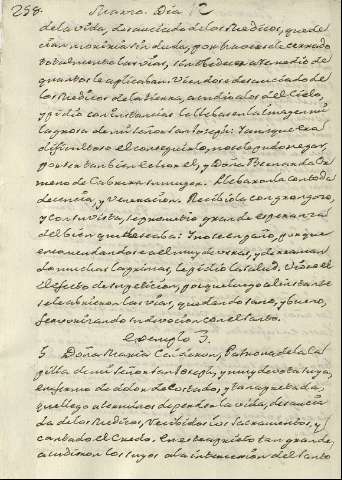 258. Marzo. Dia 12
de la vida, desauciado de los Medicos, que de
cian moriria sin duda, por haverse le cerrado
totalmente las vias, sin obedecer a remedio de
quantos le aplicaban. Viendose desauciado de
los Medicos de la tierra, acudio a los del Cielo,
y pidio con instancia le llebasen la Imagen mi
lagrosa de mi Señor San Joseph: Y aunque era
dificultoso el conseguirlo, no se lo pudo negar,
por ser tan bien echor el, y Doña Bernarda
meno de Cabrera su muger. Llebaronla con toda
decencia, y veneracion. Recibiola con gran gozo,
y con su vista, se prometio grandes esperanzas
del bien que deseaba: Y no se engañó, porque
encomendandose a el muy de veras, y derraman
do muchas lagrimas, le pidio la salud. Viose el
efecto de su peticion, porque luego al instante
se le abrieron las vias, quedando sano, y bueno,
favor in devocion con el Santo.
Exemplo 3.
§ Doña Maria Calderon, Patrona de la Ca
pilla de mi Señor San Joseph, y muy devota suya,
enfermó de dolor de Costado, y tan apretada,
que llegó a terminos de perder la vida, desaucia
da de los Medicos, recibidos los Sacramentos, y
cantado el Credo. En este aprieto tan grande,
acudieron los suyos a la intercesion del Santo